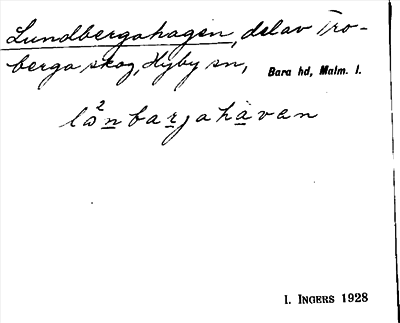 Lundbergahagen, del av Tro-
berga skog, Hyby sn, Bara hd, Malm. l.
lω²n̲bar̲jahä̲van
I. INGERS 1928